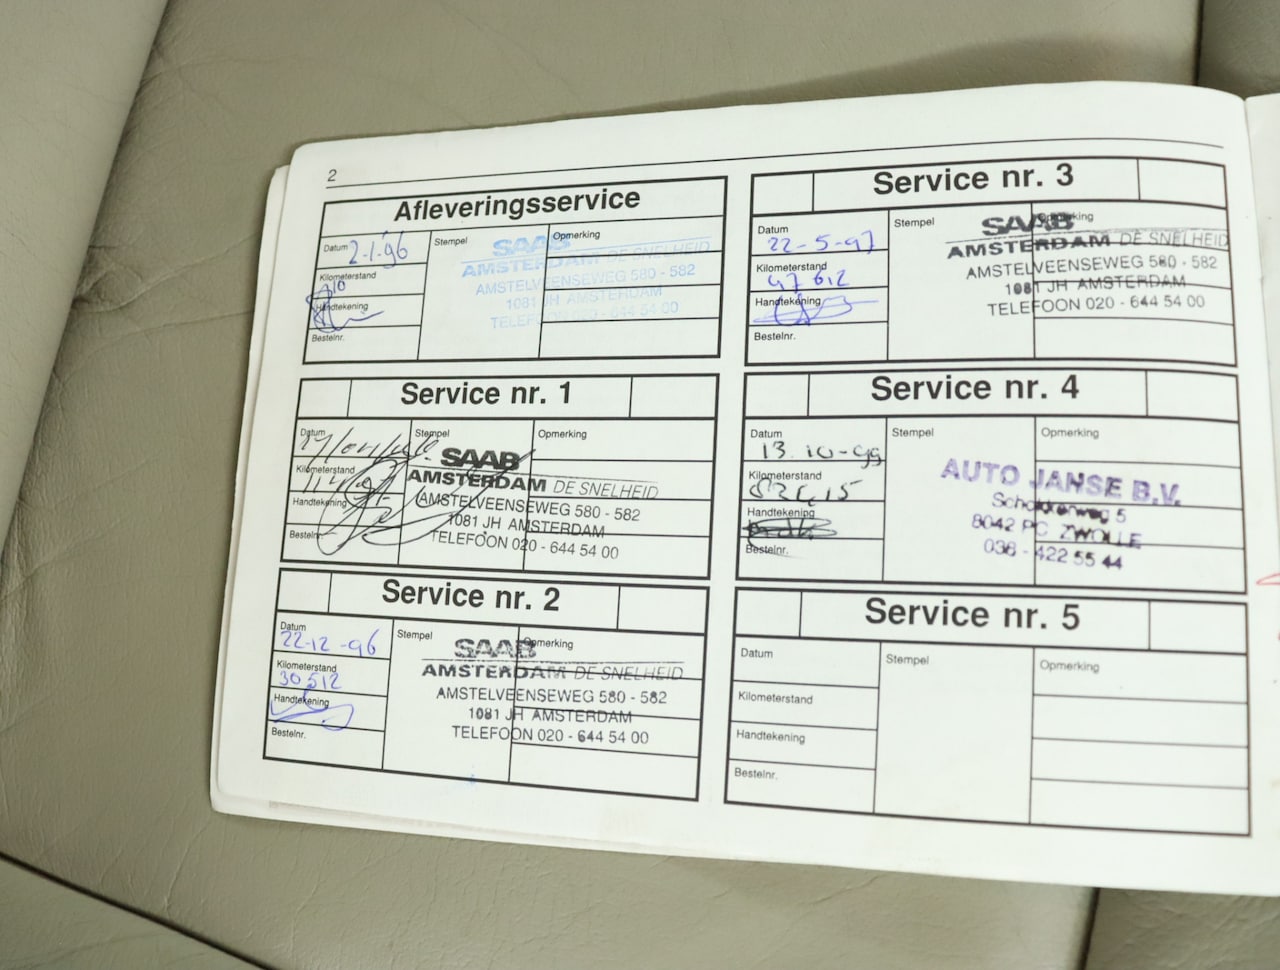 2
Afleveringsservice
Datum 2-1-96
Stempel
Opmerking
SAAB
AMSTERDAM DE SNELHEID
AMSTELVEENSEWEG 580 - 582
1081 JH AMSTERDAM
TELEFOON 020 - 644 54 00
Kilometerstand
10
Handtekening
Bestelnr.
Service nr. 1
Datum
Stempel
Opmerking
SAAB
AMSTERDAM DE SNELHEID
AMSTELVEENSEWEG 580 - 582
1081 JH AMSTERDAM
TELEFOON 020 - 644 54 00
Kilometerstand
Handtekening
Bestelnr.
Service nr. 2
Datum
22-12-96
Stempel
Opmerking
SAAB
AMSTERDAM DE SNELHEID
AMSTELVEENSEWEG 580 - 582
1081 JH AMSTERDAM
TELEFOON 020 - 644 54 00
Kilometerstand
30512
Handtekening
Bestelnr.
Service nr. 3
Datum
22-5-97
Stempel
Opmerking
SAAB
AMSTERDAM DE SNELHEID
AMSTELVEENSEWEG 580 - 582
1081 JH AMSTERDAM
TELEFOON 020 - 644 54 00
Kilometerstand
47612
Handtekening
Bestelnr.
Service nr. 4
Datum
13.10-99
Stempel
Opmerking
AUTO JANSE B.V.
8042 PC ZWOLLE
038 - 422 55 44
Kilometerstand
Handtekening
Bestelnr.
Service nr. 5
Datum
Stempel
Opmerking
Kilometerstand
Handtekening
Bestelnr.